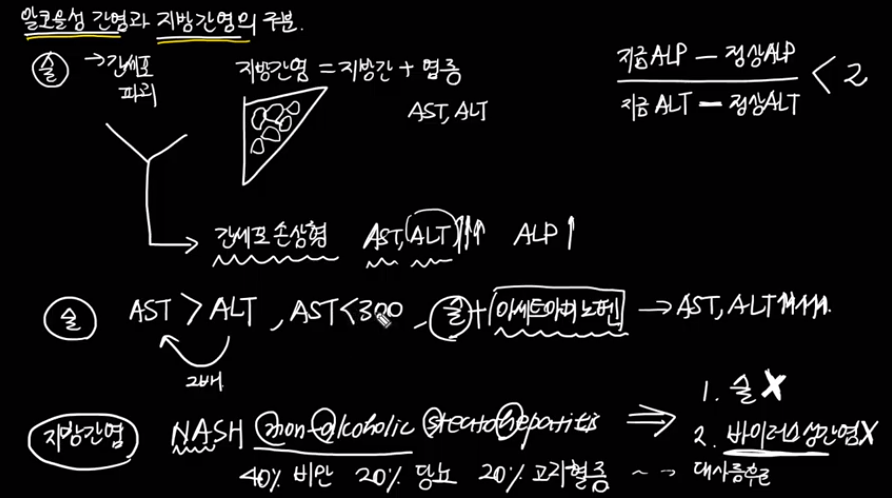 알코올성 간염과 지방간염의 구분.
술 → 간세포 파괴
지방간염 = 지방간 + 염증
AST, ALT
지금ALP - 정상ALP
지금 ALT - 정상ALT
< 2
간세포 손상형 AST, ALT ↑↑↑ ALP ↑
술 AST > ALT, AST < 300, 술 + 아세트아미노펜 → AST, ALT ↑↑↑↑↑
2배
지방간염 NASH non-alcoholic steatohepatitis ⇒
1. 술 X
2. 바이러스성간염X
40% 비만 20% 당뇨 20% 고지혈증 ~ → 대사증후군